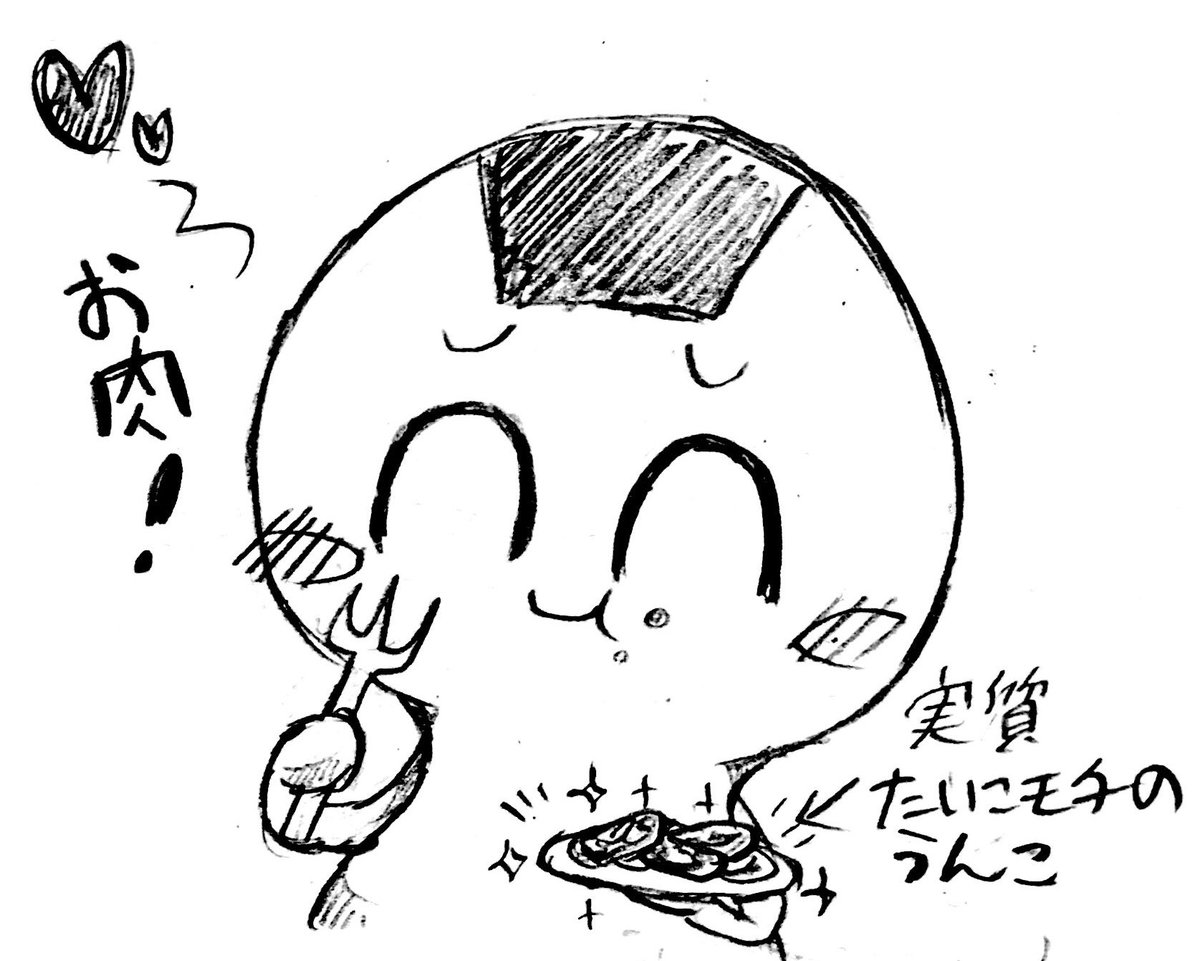 お肉!
実質
たいにモチの
うんこ